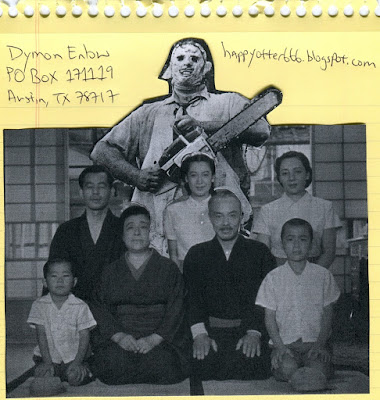 Dymon Enlow
PO Box 171119
Austin, TX 78717
happyotter666.blogspot.com